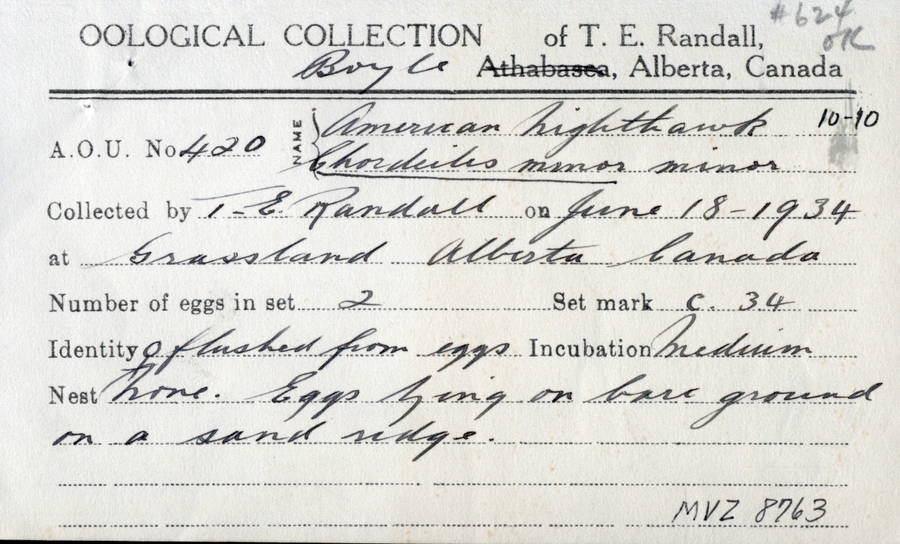 #624
OOLOGICAL COLLECTION of T. E. Randall,
OK
Boyle Athabasca, Alberta, Canada
American Nighthawk 10-10
A.O.U. No. 420 NAME Chordeiles minor minor
Collected by T. E. Randall on June 18-1934
at Grassland Alberta Canada
Number of eggs in set 2 Set mark c. 34
Identity ♀ flushed from eggs Incubation Medium
Nest None. Eggs lying on bare ground
on a sand ridge.
MVZ 8763